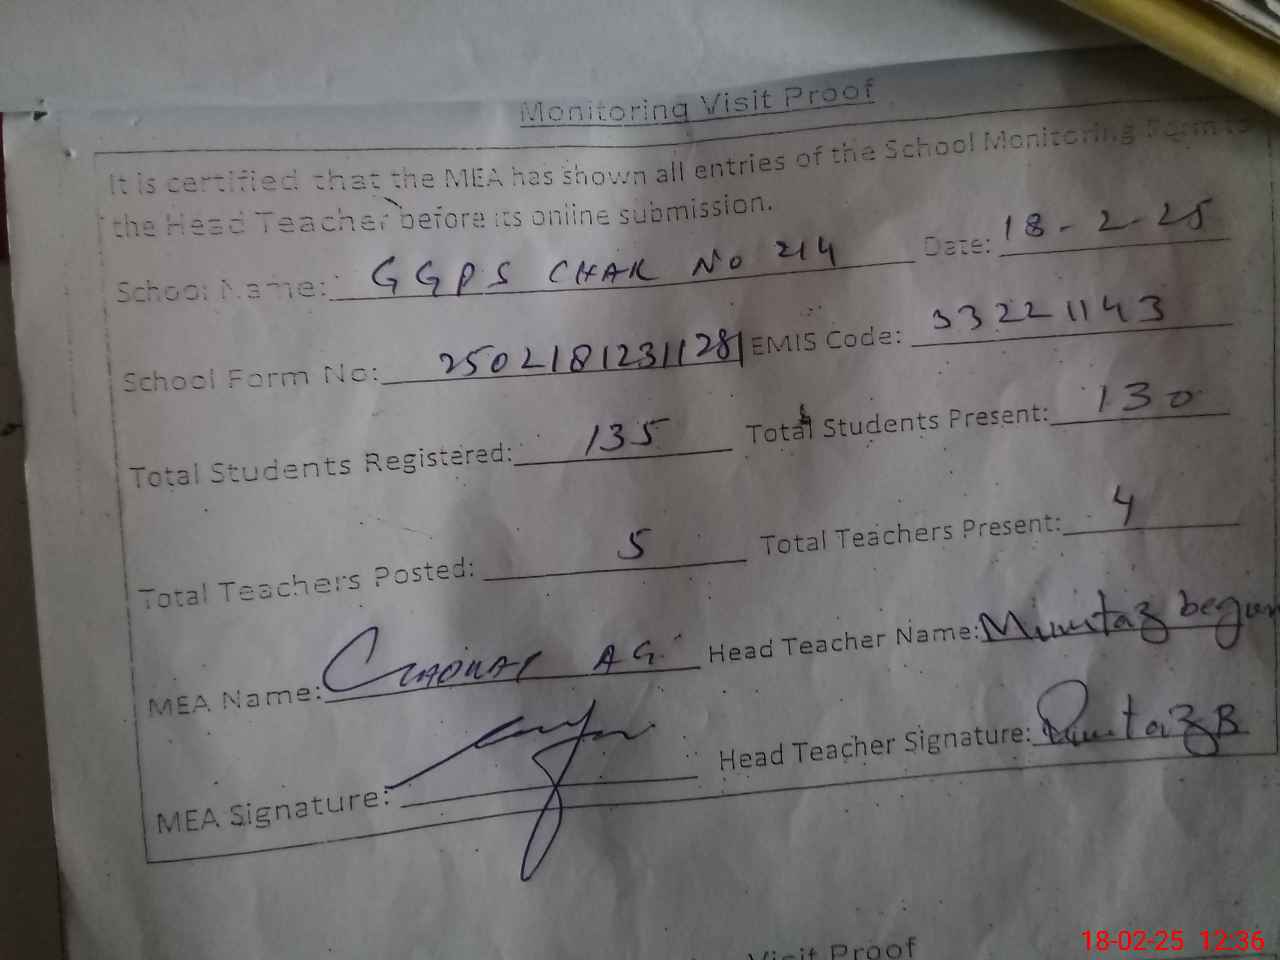 Monitoring Visit Proof
It is certified that the MEA has shown all entries of the School Monitoring Form to
the Head Teacher before its online submission.
School Name: GGPS CHAK No 214 Date: 18-2-25
School Form No: 2502181231128 EMIS Code: 33221143
Total Students Registered: 135 Total Students Present: 130
Total Teachers Posted: 5 Total Teachers Present: 4
MEA Name: AG Head Teacher Name: Mumtaz begum
MEA Signature: Head Teacher Signature: Mumtaz B
Visit Proof
18-02-25 12:36